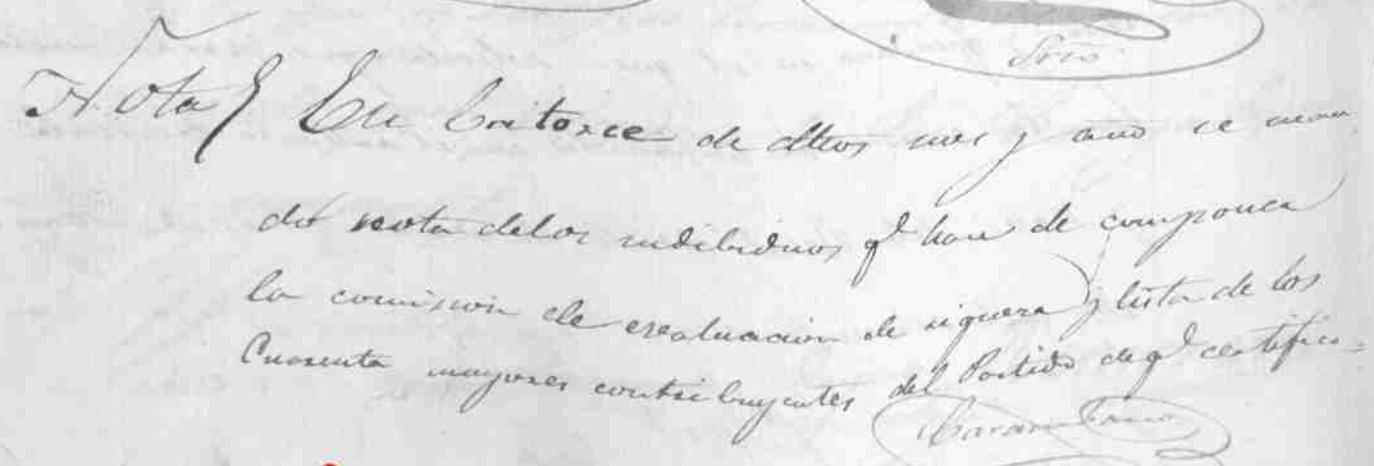 Srio
Nota } En Catorce de dhos mes y año se man
dó nota delos indibiduos qe han de componer
la comision de evaluacion de riqueza y lista de los
Cuarenta mayores contribuyentes del Partido de qe certifico=